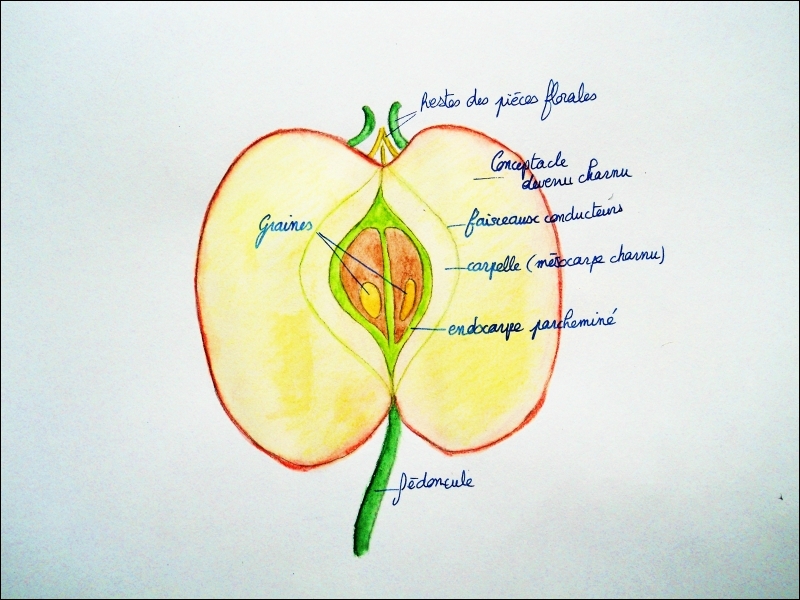 Restes des pièces florales
Conceptacle
devenu charnu
Graines
faisceaux conducteurs
carpelle (mésocarpe charnu)
endocarpe parcheminé
Pédoncule